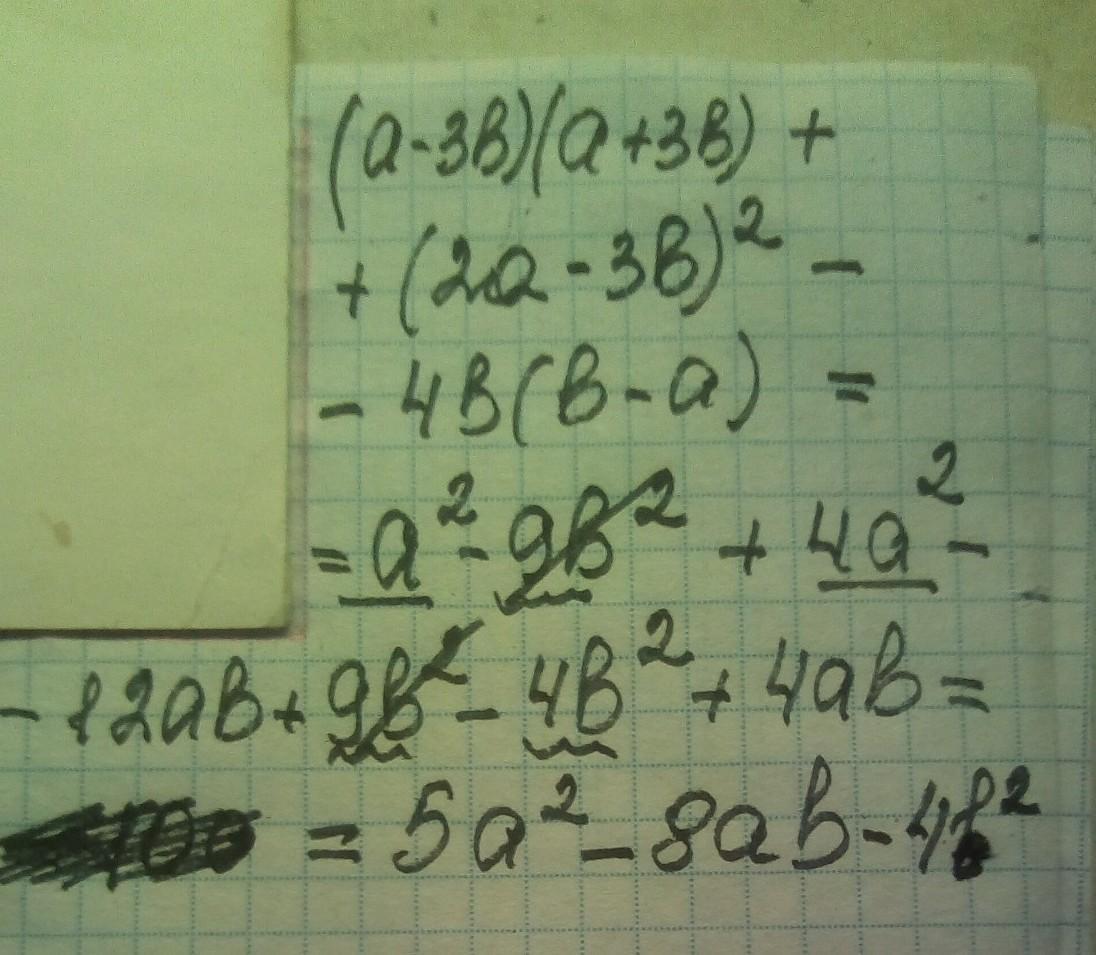 (a-3b)(a+3b) +
+ (2a-3b)² -
- 4b(b-a) =
= a² - 9b² + 4a² -
- 12ab + 9b² - 4b² + 4ab =
= 5a² - 8ab - 4b²